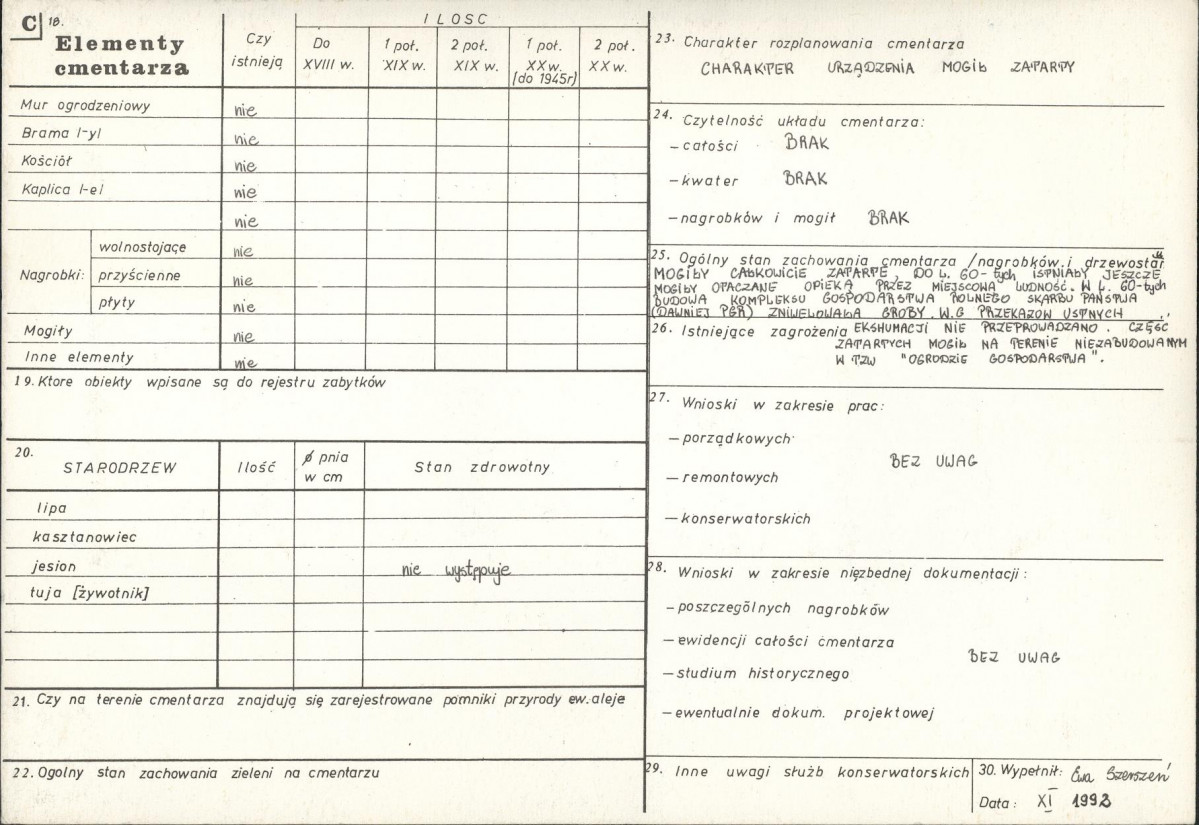 C 18.
Elementy
cmentarza
Czy
istnieją
ILOSC
Do
XVIII w.
1 poł.
XIX w.
2 poł.
XIX w.
1 poł.
XX w.
[do 1945r]
2 poł.
XX w.
Mur ogrodzeniowy nie
Brama l-yl nie
Kościół nie
Kaplica l-el nie
nie
Nagrobki: wolnostojące nie
przyścienne nie
płyty nie
Mogiły nie
Inne elementy nie
19. Ktore obiekty wpisane są do rejestru zabytków
20.
STARODRZEW Ilość ø pnia
w cm
Stan zdrowotny
lipa
kasztanowiec
jesion nie występuje
tuja [żywotnik]
21. Czy na terenie cmentarza znajdują się zarejestrowane pomniki przyrody ew. aleje
22. Ogolny stan zachowania zieleni na cmentarzu
23. Charakter rozplanowania cmentarza
CHARAKTER URZĄDZENIA MOGIŁ ZATARTY
24. Czytelność układu cmentarza:
– całości BRAK
– kwater BRAK
– nagrobków i mogił BRAK
25. Ogólny stan zachowania cmentarza /nagrobków i drzewosta
MOGIŁY CAŁKOWICIE ZATARTE, DO L. 60-tych ISTNIAŁY JESZCZE
MOGIŁY OTACZANE OPIEKĄ PRZEZ MIEJSCOWĄ LUDNOŚĆ. W L. 60-tych
BUDOWA KOMPLEKSU GOSPODARSTWA ROLNEGO SKARBU PAŃSTWA
(DAWNIEJ PGR) ZNIWELOWAŁA GROBY. W.G PRZEKAZÓW USTNYCH
26. Istniejące zagrożenia EKSHUMACJI NIE PRZEPROWADZANO. CZĘŚĆ
ZATARTYCH MOGIŁ NA TERENIE NIEZABUDOWANYM
W TZW "OGRODZIE GOSPODARSTWA".
27. Wnioski w zakresie prac:
– porządkowych
BEZ UWAG
– remontowych
– konserwatorskich
28. Wnioski w zakresie nięzbednej dokumentacji:
– poszczególnych nagrobków
– ewidencji całości cmentarza
BEZ UWAG
– studium historycznego
– ewentualnie dokum. projektowej
29. Inne uwagi służb konserwatorskich
30. Wypełnił: Ewa Szerszeń
Data: XI 1992